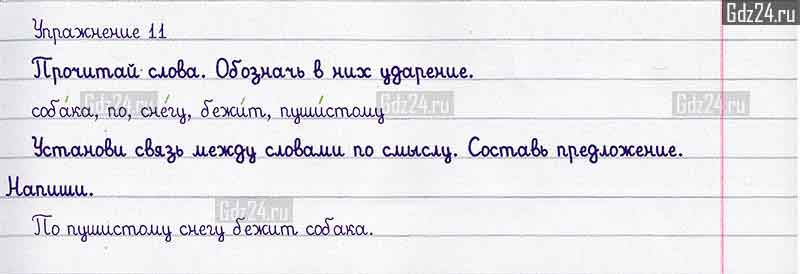 Gdz24.ru
Упражнение 11
Прочитай слова. Обозначь в них ударение.
Gdz24.ru Gdz24.ru Gdz24.ru
соба́ка, по, сне́гу, бежи́т, пуши́стому
Установи связь между словами по смыслу. Составь предложение.
Напиши.
Gdz24.ru
По пушистому снегу бежит собака.